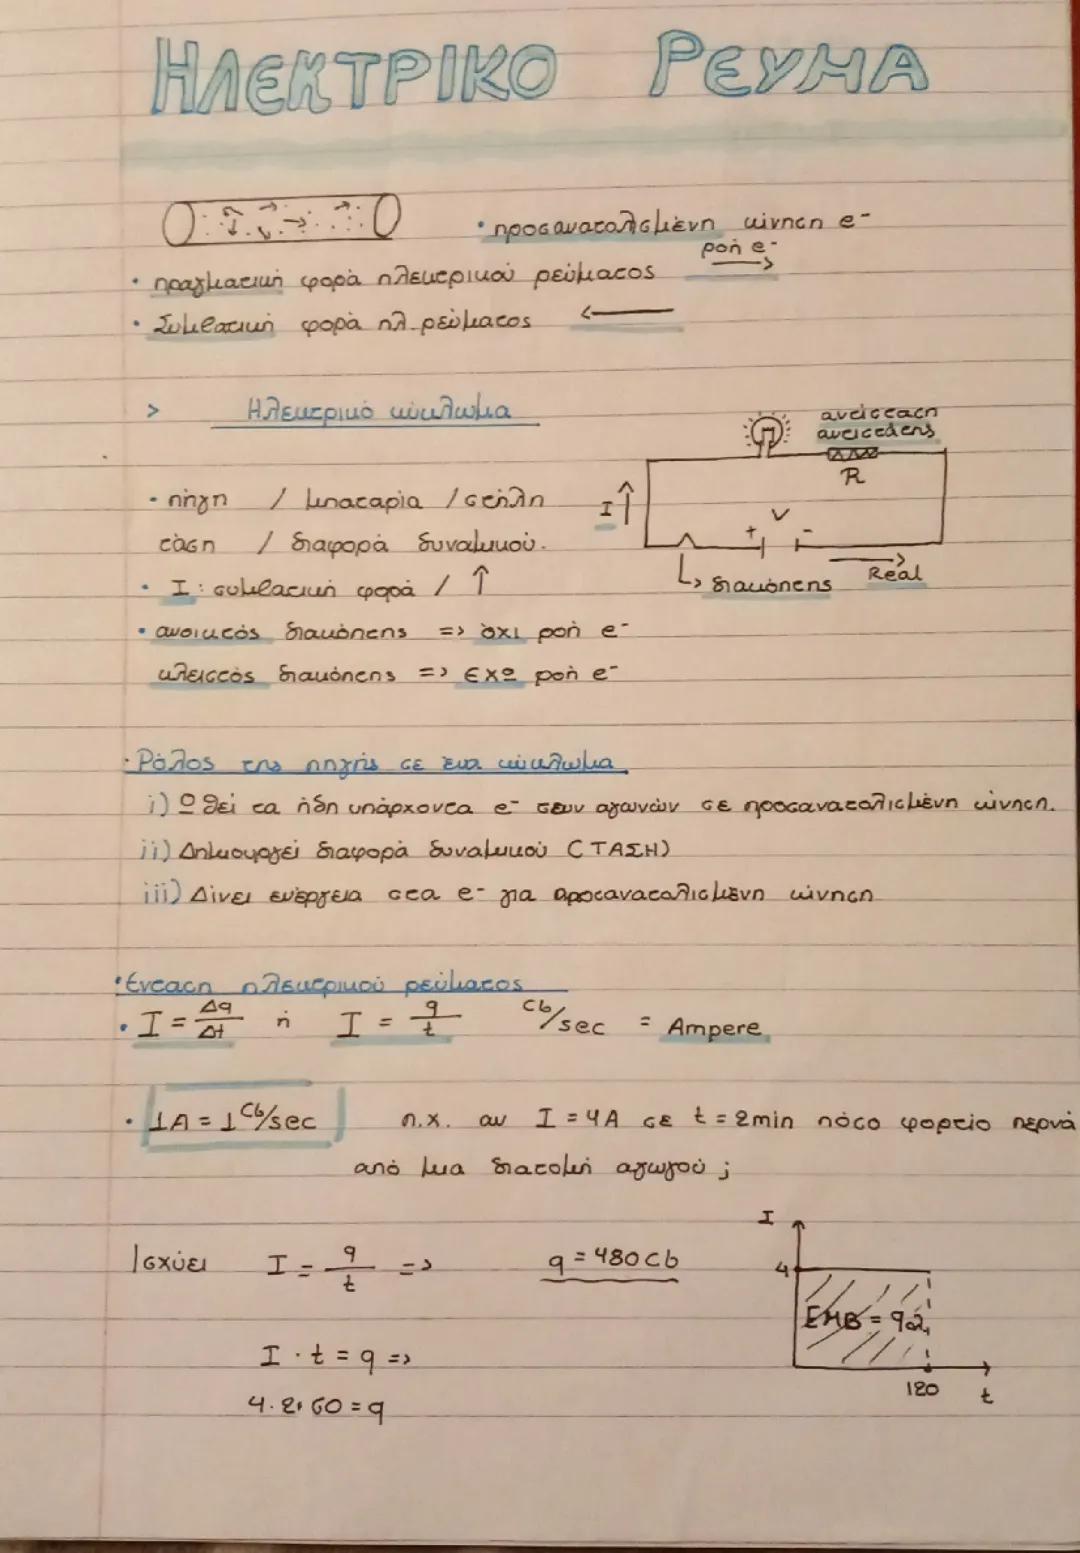 ΗΛΕΚΤΡΙΚΟ ΡΕΥΜΑ
• προσανατολισμένη κίνηση e⁻
• πραγματική φορά ηλεκτρικού ρεύματος ροή e⁻ →
• Συμβατική φορά ηλ. ρεύματος ←
> Ηλεκτρικό κύκλωμα
αντίσταση
αντιστάτης
R
• πηγή / μπαταρία / στήλη
I ↑
V
+ -
τάση / διαφορά δυναμικού.
→ Real
↳ διακόπτης
• I : συμβατική φορά / ↑
• ανοικτός διακόπτης => όχι ροή e⁻
κλειστός διακόπτης => έχω ροή e⁻
• Ρόλος της πηγής σε ένα κύκλωμα
i) Ωθεί τα ήδη υπάρχοντα e⁻ των αγωγών σε προσανατολισμένη κίνηση.
ii) Δημιουργεί διαφορά δυναμικού (ΤΑΣΗ)
iii) Δίνει ενέργεια στα e⁻ για προσανατολισμένη κίνηση
• Ένταση ηλεκτρικού ρεύματος
• I = Δq/Δt ή I = q/t Cb/sec = Ampere
• 1A = 1 Cb/sec π.χ. αν I = 4A σε t = 2min πόσο φορτίο περνά
από μια διατομή αγωγού ;
Ισχύει I = q/t => q = 480 Cb
I · t = q =>
4 · 2 · 60 = q
I
4
ΕΜΒ = qολ
120 t